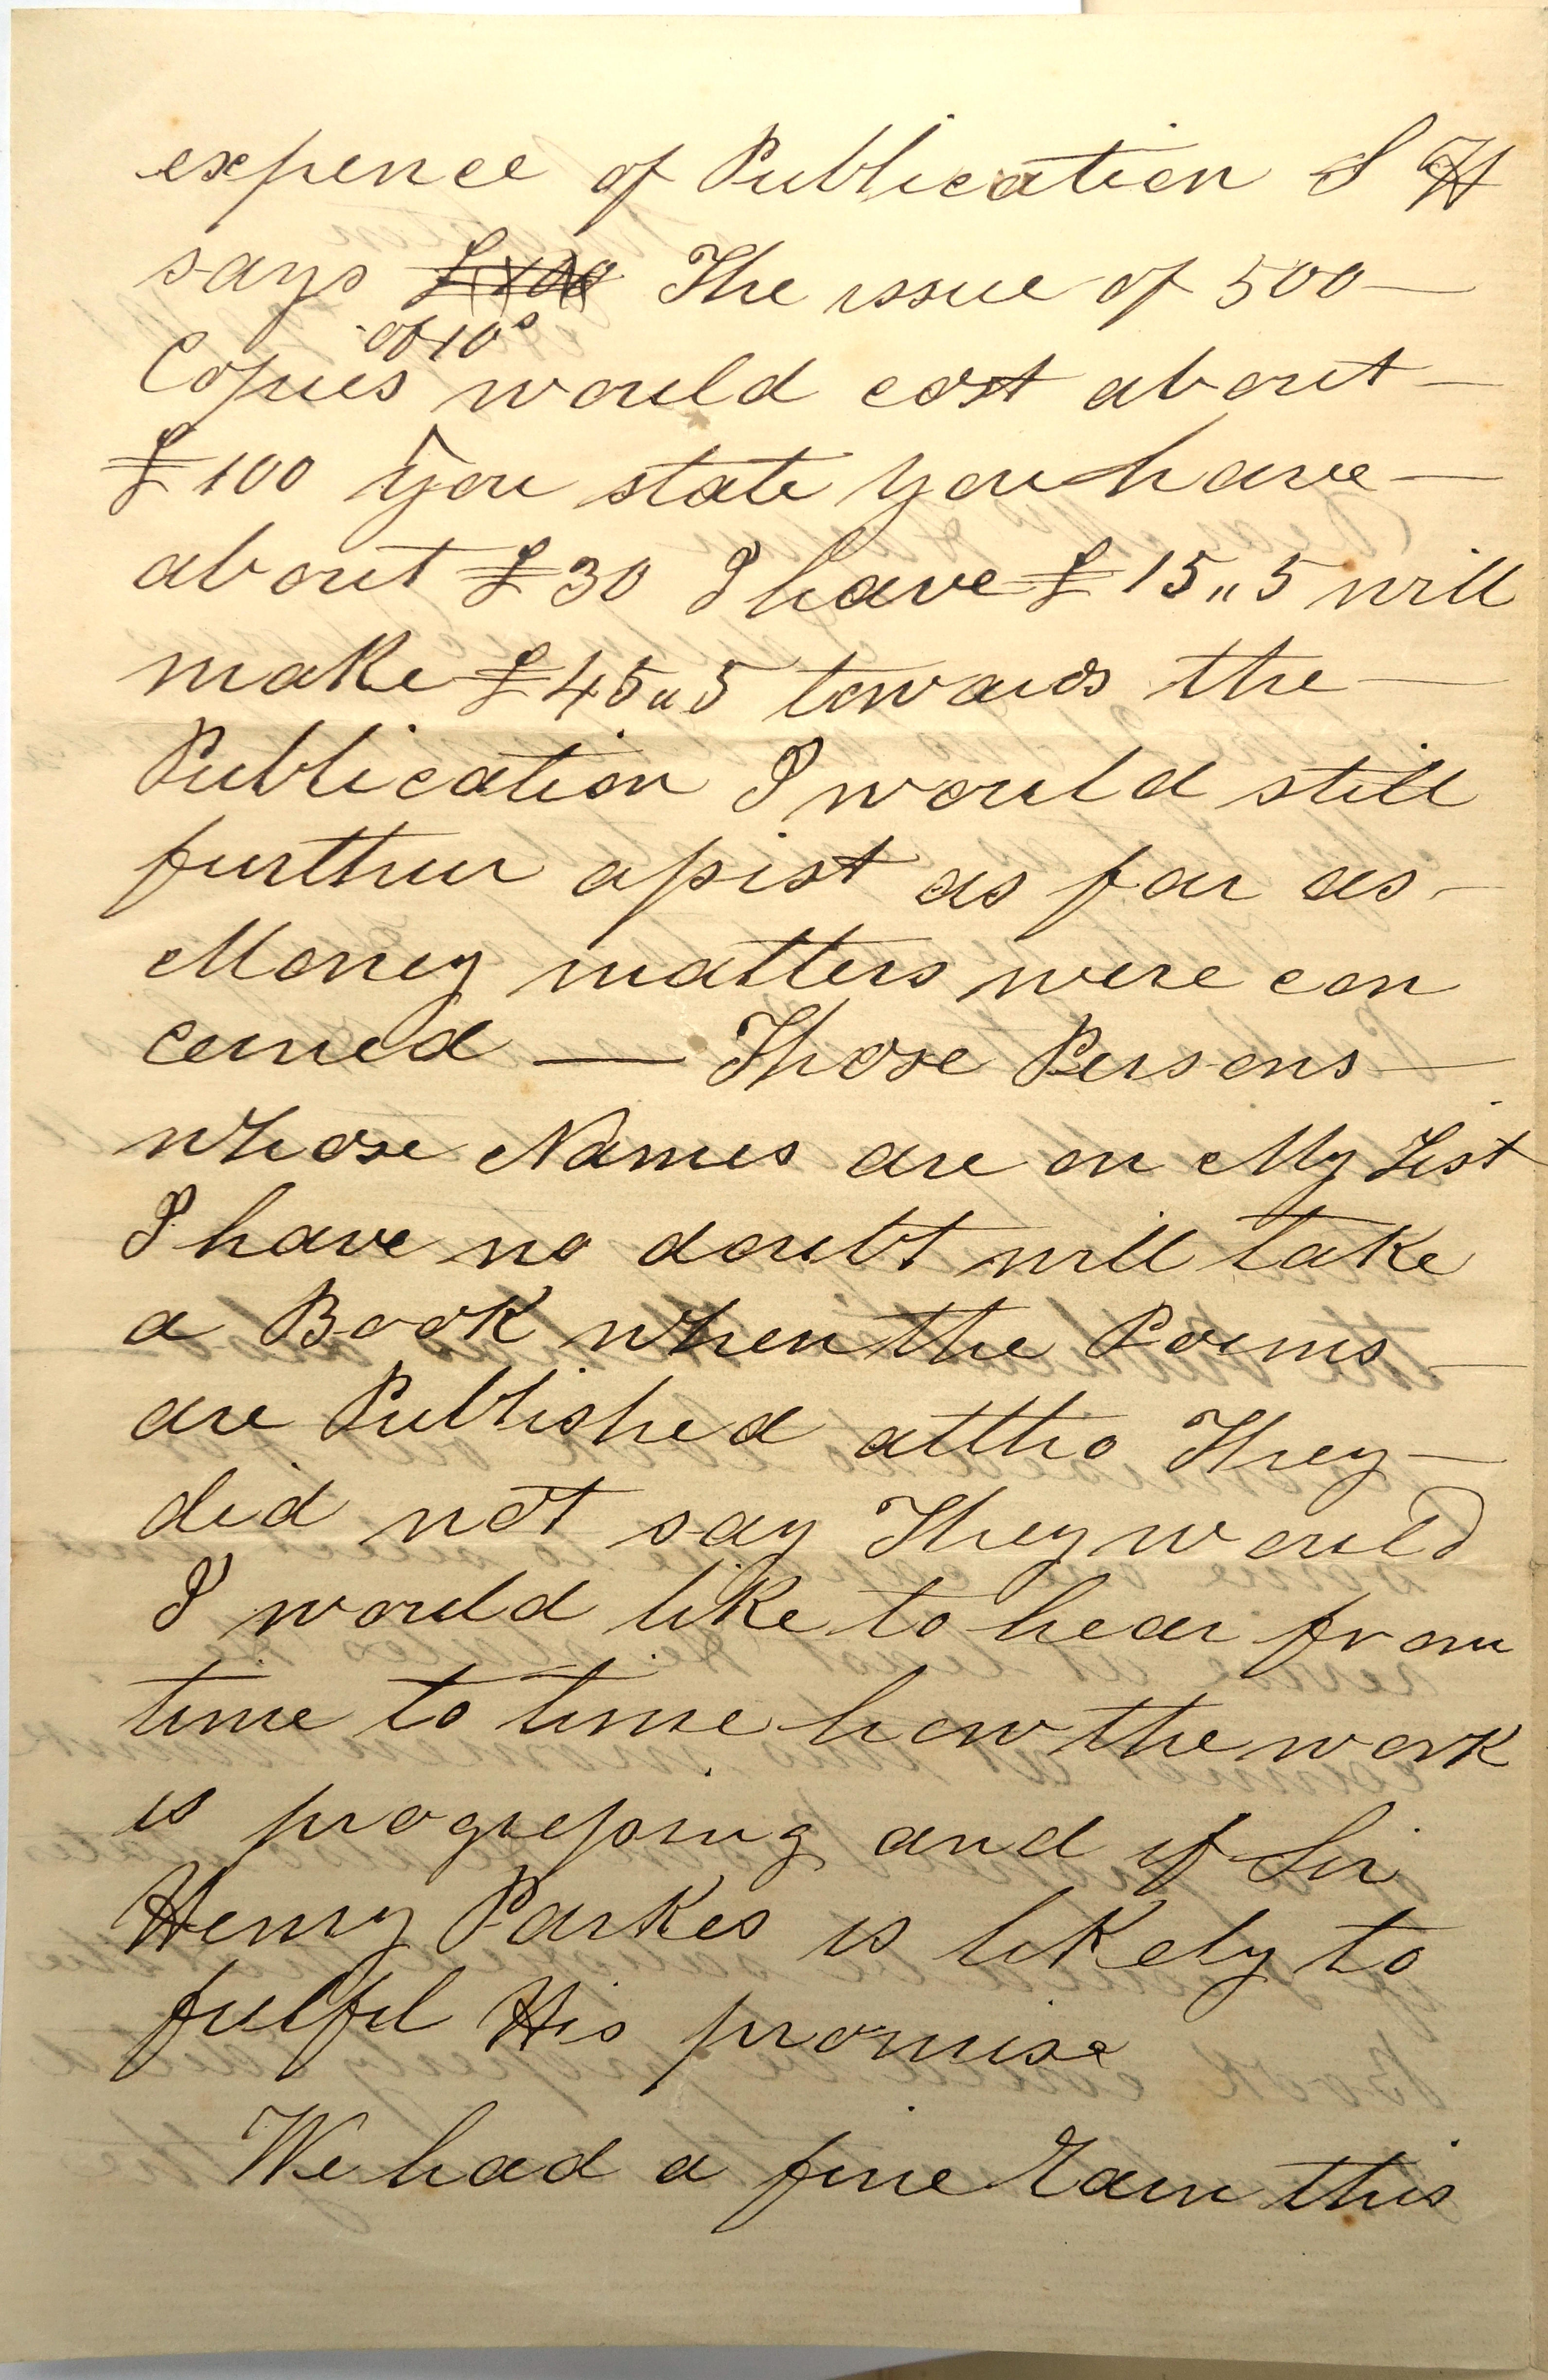 expence of Publication S H
says £100 The issue of 500 —
at 10s
Copies would cost about —
£100 You state you have —
about £30 I have £15"5 will
make £45"5 towards the —
Publication I would still
further assist as far as —
Money matters were con
cerned — Those Persons —
whose Names are on My List
I have no doubt will take
a Book when the Poems —
are Published altho They —
did not say They would
I would like to hear from
time to time how the work
is progressing and if Sir
Henry Parkes is likely to
fulfil His promise
We had a fine Rain this